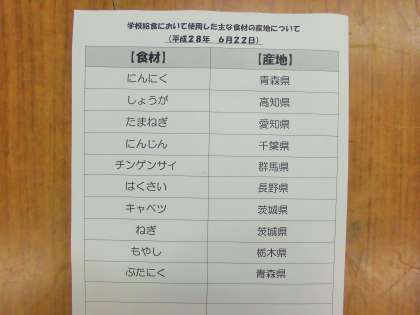 学校給食において使用した主な食材の産地について
(平成28年 6月22日)
【食材】 【産地】
にんにく 青森県
しょうが 高知県
たまねぎ 愛知県
にんじん 千葉県
チンゲンサイ 群馬県
はくさい 長野県
キャベツ 茨城県
ねぎ 茨城県
もやし 栃木県
ぶたにく 青森県